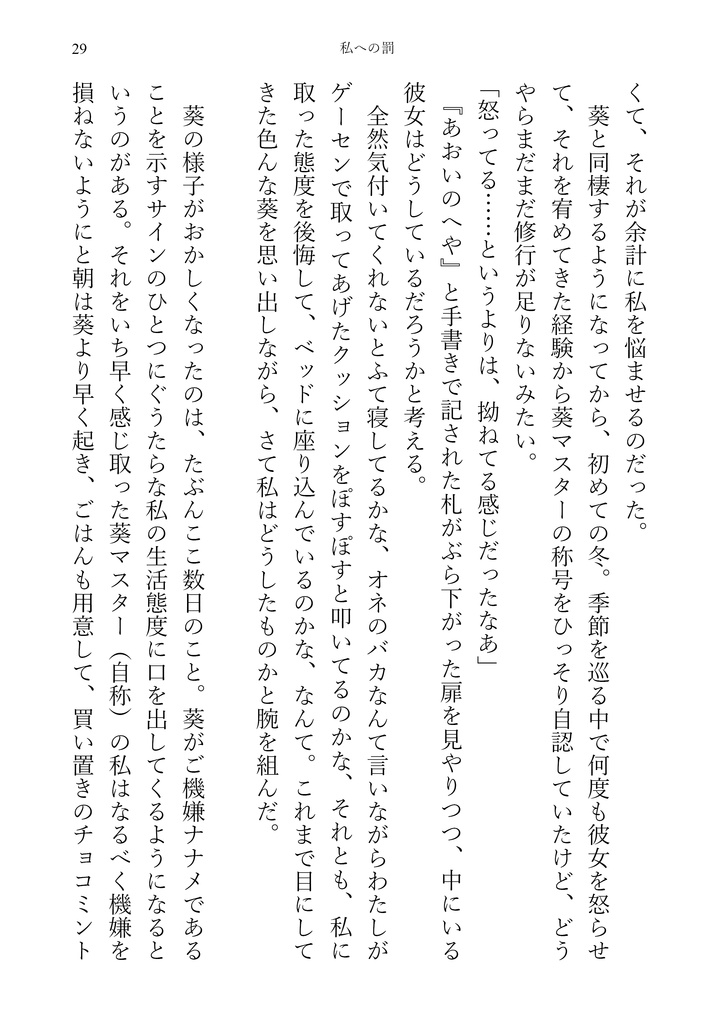 29
私への罰
くて、それが余計に私を悩ませるのだった。
葵と同棲するようになってから、初めての冬。季節を巡る中で何度も彼女を怒らせ
て、それを宥めてきた経験から葵マスターの称号をひっそり自認していたけど、どう
やらまだまだ修行が足りないみたい。
「怒ってる……というよりは、拗ねてる感じだったなあ」
『あおいのへや』と手書きで記された札がぶら下がった扉を見やりつつ、中にいる
彼女はどうしているだろうかと考える。
全然気付いてくれないとふて寝してるかな、オネのバカなんて言いながらわたしが
ゲーセンで取ってあげたクッションをぽすぽすと叩いてるのかな、それとも、私に
取った態度を後悔して、ベッドに座り込んでいるのかな、なんて。これまで目にして
きた色んな葵を思い出しながら、さて私はどうしたものかと腕を組んだ。
葵の様子がおかしくなったのは、たぶんここ数日のこと。葵がご機嫌ナナメである
ことを示すサインのひとつにぐうたらな私の生活態度に口を出してくるようになると
いうのがある。それをいち早く感じ取った葵マスター（自称）の私はなるべく機嫌を
損ねないようにと朝は葵より早く起き、ごはんも用意して、買い置きのチョコミント